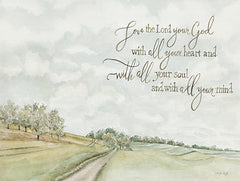 Love the Lord your God
with all your heart and
with all your soul
and with all your mind